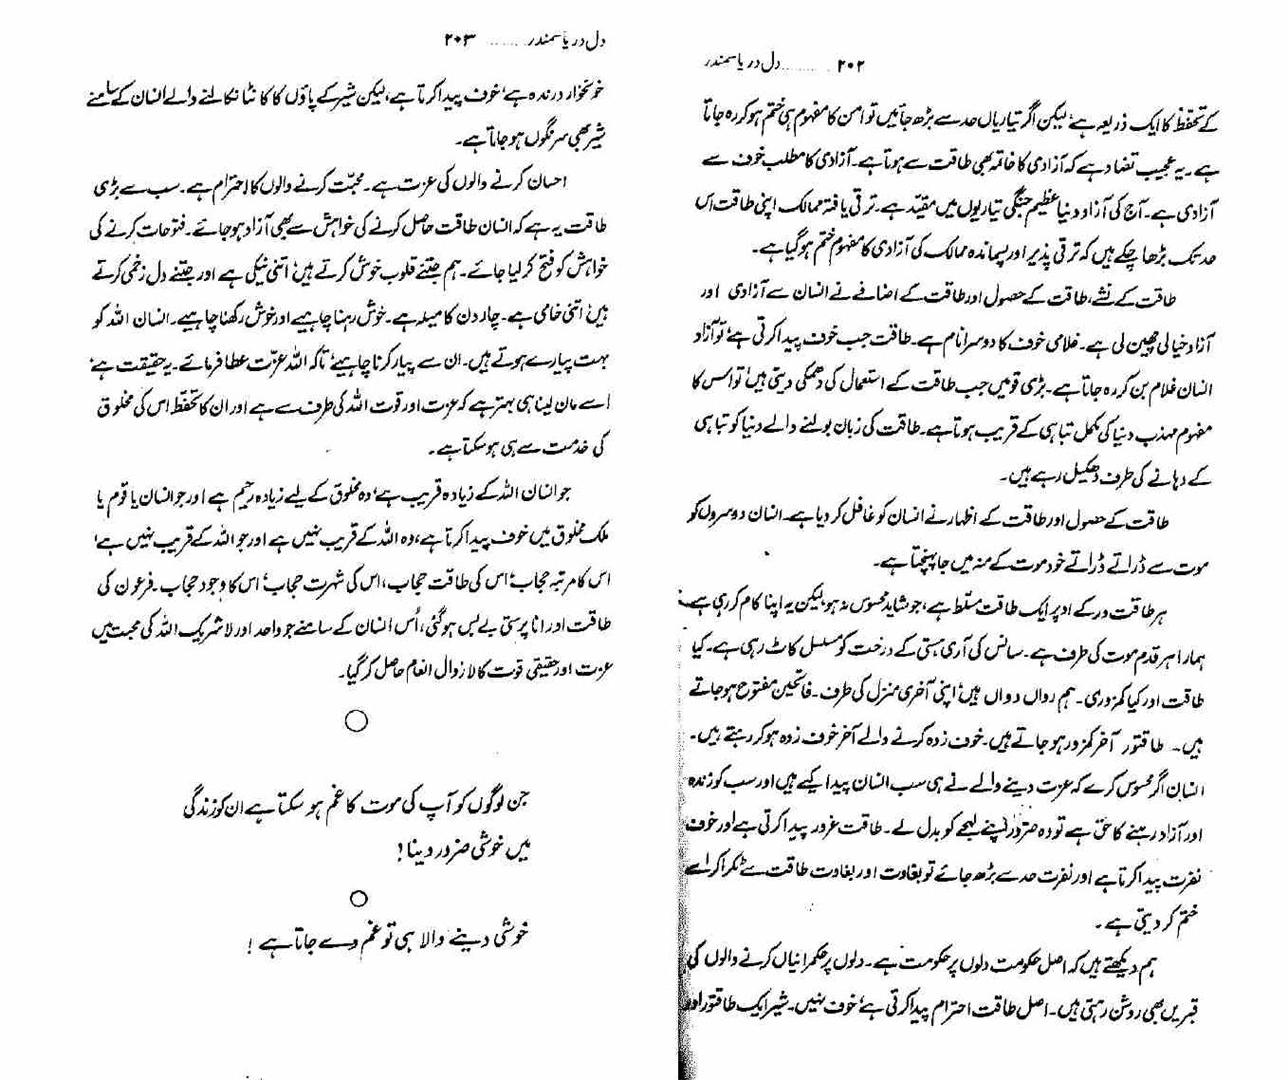 ۲۰۲ ........ دل دریا سمندر
کے تحفظ کا ایک ذریعہ ہے، لیکن اگر تیاریاں حد سے بڑھ جائیں تو امن کا مفہوم ہی ختم ہو کر رہ جاتا
ہے۔ یہ عجیب تضاد ہے کہ آزادی کا خاتمہ بھی طاقت سے ہوتا ہے۔ آزادی کا مطلب خوف سے
آزادی ہے۔ آج کی آزاد دنیا عظیم جنگی تیاریوں میں مقید ہے۔ ترقی یافتہ ممالک اپنی طاقت اس
حد تک بڑھا چکے ہیں کہ ترقی پذیر اور پسماندہ ممالک کی آزادی کا مفہوم ختم ہو گیا ہے۔
طاقت کے نشے، طاقت کے حصول اور طاقت کے اضافے نے انسان سے آزادی اور
آزاد خیالی چھین لی ہے۔ غلامی خوف کا دوسرا نام ہے۔ طاقت جب خوف پیدا کرتی ہے، تو آزاد
انسان غلام بن کر رہ جاتا ہے۔ بڑی قومیں جب طاقت کے استعمال کی دھمکی دیتی ہیں، تو اس کا
مفہوم مہذب دنیا کی مکمل تباہی کے قریب ہوتا ہے۔ طاقت کی زبان بولنے والے دنیا کو تباہی
کے دہانے کی طرف دھکیل رہے ہیں۔
طاقت کے حصول اور طاقت کے اظہار نے انسان کو غافل کر دیا ہے۔ انسان دوسروں کو
موت سے ڈراتے ڈراتے خود موت کے منہ میں جا پہنچتا ہے۔
ہر طاقت ور کے اوپر ایک طاقت مسلط ہے، جو شاید محسوس نہ ہو، لیکن یہ اپنا کام کر رہی ہے۔
ہمارا ہر قدم موت کی طرف ہے۔ سانس کی آری ہستی کے درخت کو مسلسل کاٹ رہی ہے۔ کیا
طاقت اور کیا کمزوری۔ ہم رواں دواں ہیں، اپنی آخری منزل کی طرف۔ فاتحین مفتوح ہو جاتے
ہیں۔ طاقتور آخر کمزور ہو جاتے ہیں۔ خوف زدہ کرنے والے آخر خوف زدہ ہو کر رہتے ہیں۔
انسان اگر محسوس کرے کہ عزت دینے والے نے ہی سب انسان پیدا کیے ہیں اور سب کو زندہ
اور آزاد رہنے کا حق ہے تو وہ ضرور اپنے لہجے کو بدل لے۔ طاقت غرور پیدا کرتی ہے اور خوف
نفرت پیدا کرتا ہے اور نفرت حد سے بڑھ جائے تو بغاوت اور بغاوت طاقت سے ٹکرا کر اسے
ختم کر دیتی ہے۔
ہم دیکھتے ہیں کہ اصل حکومت دلوں پر حکومت ہے۔ دلوں پر حکمرانیاں کرنے والوں کی
قبریں بھی روشن رہتی ہیں۔ اصل طاقت احترام پیدا کرتی ہے، خوف نہیں۔ شیر ایک طاقتور اور
دل دریا سمندر ........ ۲۰۳
خونخوار درندہ ہے، خوف پیدا کرتا ہے، لیکن شیر کے پاؤں کا کانٹا نکالنے والے انسان کے سامنے
شیر بھی سرنگوں ہو جاتا ہے۔
احسان کرنے والوں کی عزت ہے۔ محبت کرنے والوں کا احترام ہے۔ سب سے بڑی
طاقت یہ ہے کہ انسان طاقت حاصل کرنے کی خواہش سے بھی آزاد ہو جائے۔ فتوحات کرنے کی
خواہش کو فتح کر لیا جائے۔ ہم جتنے قلوب خوش کرتے ہیں، اتنی نیکی ہے اور جتنے دل زخمی کرتے
ہیں، اتنی خامی ہے۔ چار دن کا میلہ ہے۔ خوش رہنا چاہیے اور خوش رکھنا چاہیے۔ انسان اللہ کو
بہت پیارے ہوتے ہیں۔ ان سے پیار کرنا چاہیے، تاکہ اللہ عزت عطا فرمائے۔ یہ حقیقت ہے،
اسے مان لینا ہی بہتر ہے کہ عزت اور قوت اللہ کی طرف سے ہے اور ان کا تحفظ اس کی مخلوق
کی خدمت سے ہی ہو سکتا ہے۔
جو انسان اللہ کے زیادہ قریب ہے، وہ مخلوق کے لیے زیادہ رحیم ہے اور جو انسان یا قوم یا
ملک مخلوق میں خوف پیدا کرتا ہے، وہ اللہ کے قریب نہیں ہے اور جو اللہ کے قریب نہیں ہے،
اس کا مرتبہ حجاب، اس کی طاقت حجاب، اس کی شہرت حجاب، اس کا وجود حجاب۔ فرعون کی
طاقت اور انا پرستی بے بس ہو گئی، اُس انسان کے سامنے جو واحد اور لا شریک اللہ کی محبت میں
عزت اور حقیقی قوت کا لازوال انعام حاصل کر گیا۔
جن لوگوں کو آپ کی موت کا غم ہو سکتا ہے ان کو زندگی
میں خوشی ضرور دینا!
خوشی دینے والا ہی تو غم دے جاتا ہے!